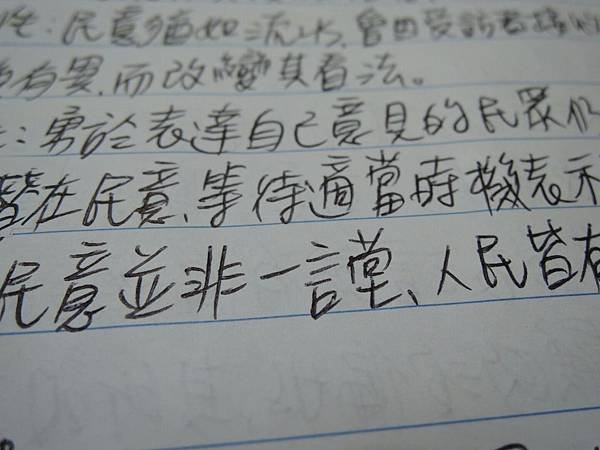 性：民意猶如流水，會因受訪者
有異，而改變其看法。
：勇於表達自己意見的民眾仍
潛在民意、等待適當時機表示
民意並非一言堂、人民皆有